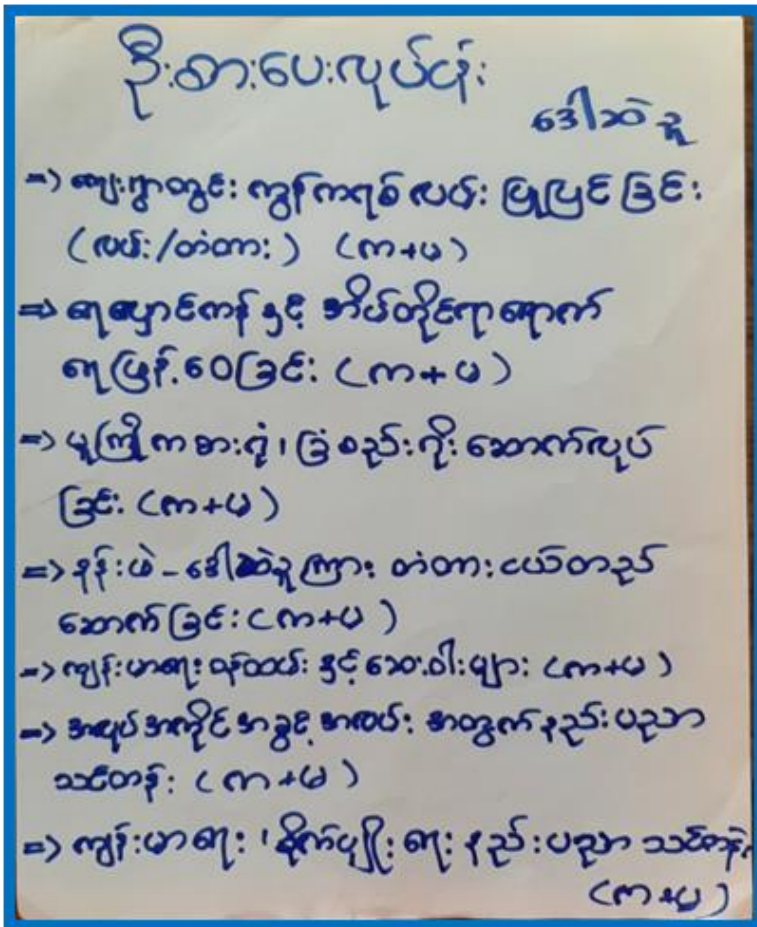 ဦးစားပေးလုပ်ငန်း
ဒေါဆဲဒူ
=> ကျေးရွာတွင်း ကွန်ကရစ် လမ်း ပြုပြင်ခြင်း
(လမ်း/တံတား) (က+မ)
=> ရေလှောင်ကန် နှင့် အိမ်တိုင်ရာရောက်
ရေဖြန့်ဝေခြင်း (က+မ)
=> မူကြိုကစားဂုံ၊ ခြံစည်းရိုး ဆောက်လုပ်
ခြင်း (က+မ)
=> နန်းဖဲ - ဒေါဆဲဒူကြား တံတားငယ်တည်
ဆောက်ခြင်း (က+မ)
=> ကျန်းမာရေး ဝန်ထမ်း နှင့် ဆေးဝါးများ (က+မ)
=> အလုပ်အကိုင်အခွင့်အလမ်း အတွက် နည်းပညာ
သင်တန်း (က+မ)
=> ကျန်းမာရေး၊ စိုက်ပျိုးရေး နည်းပညာ သင်တန်း
(က+မ)